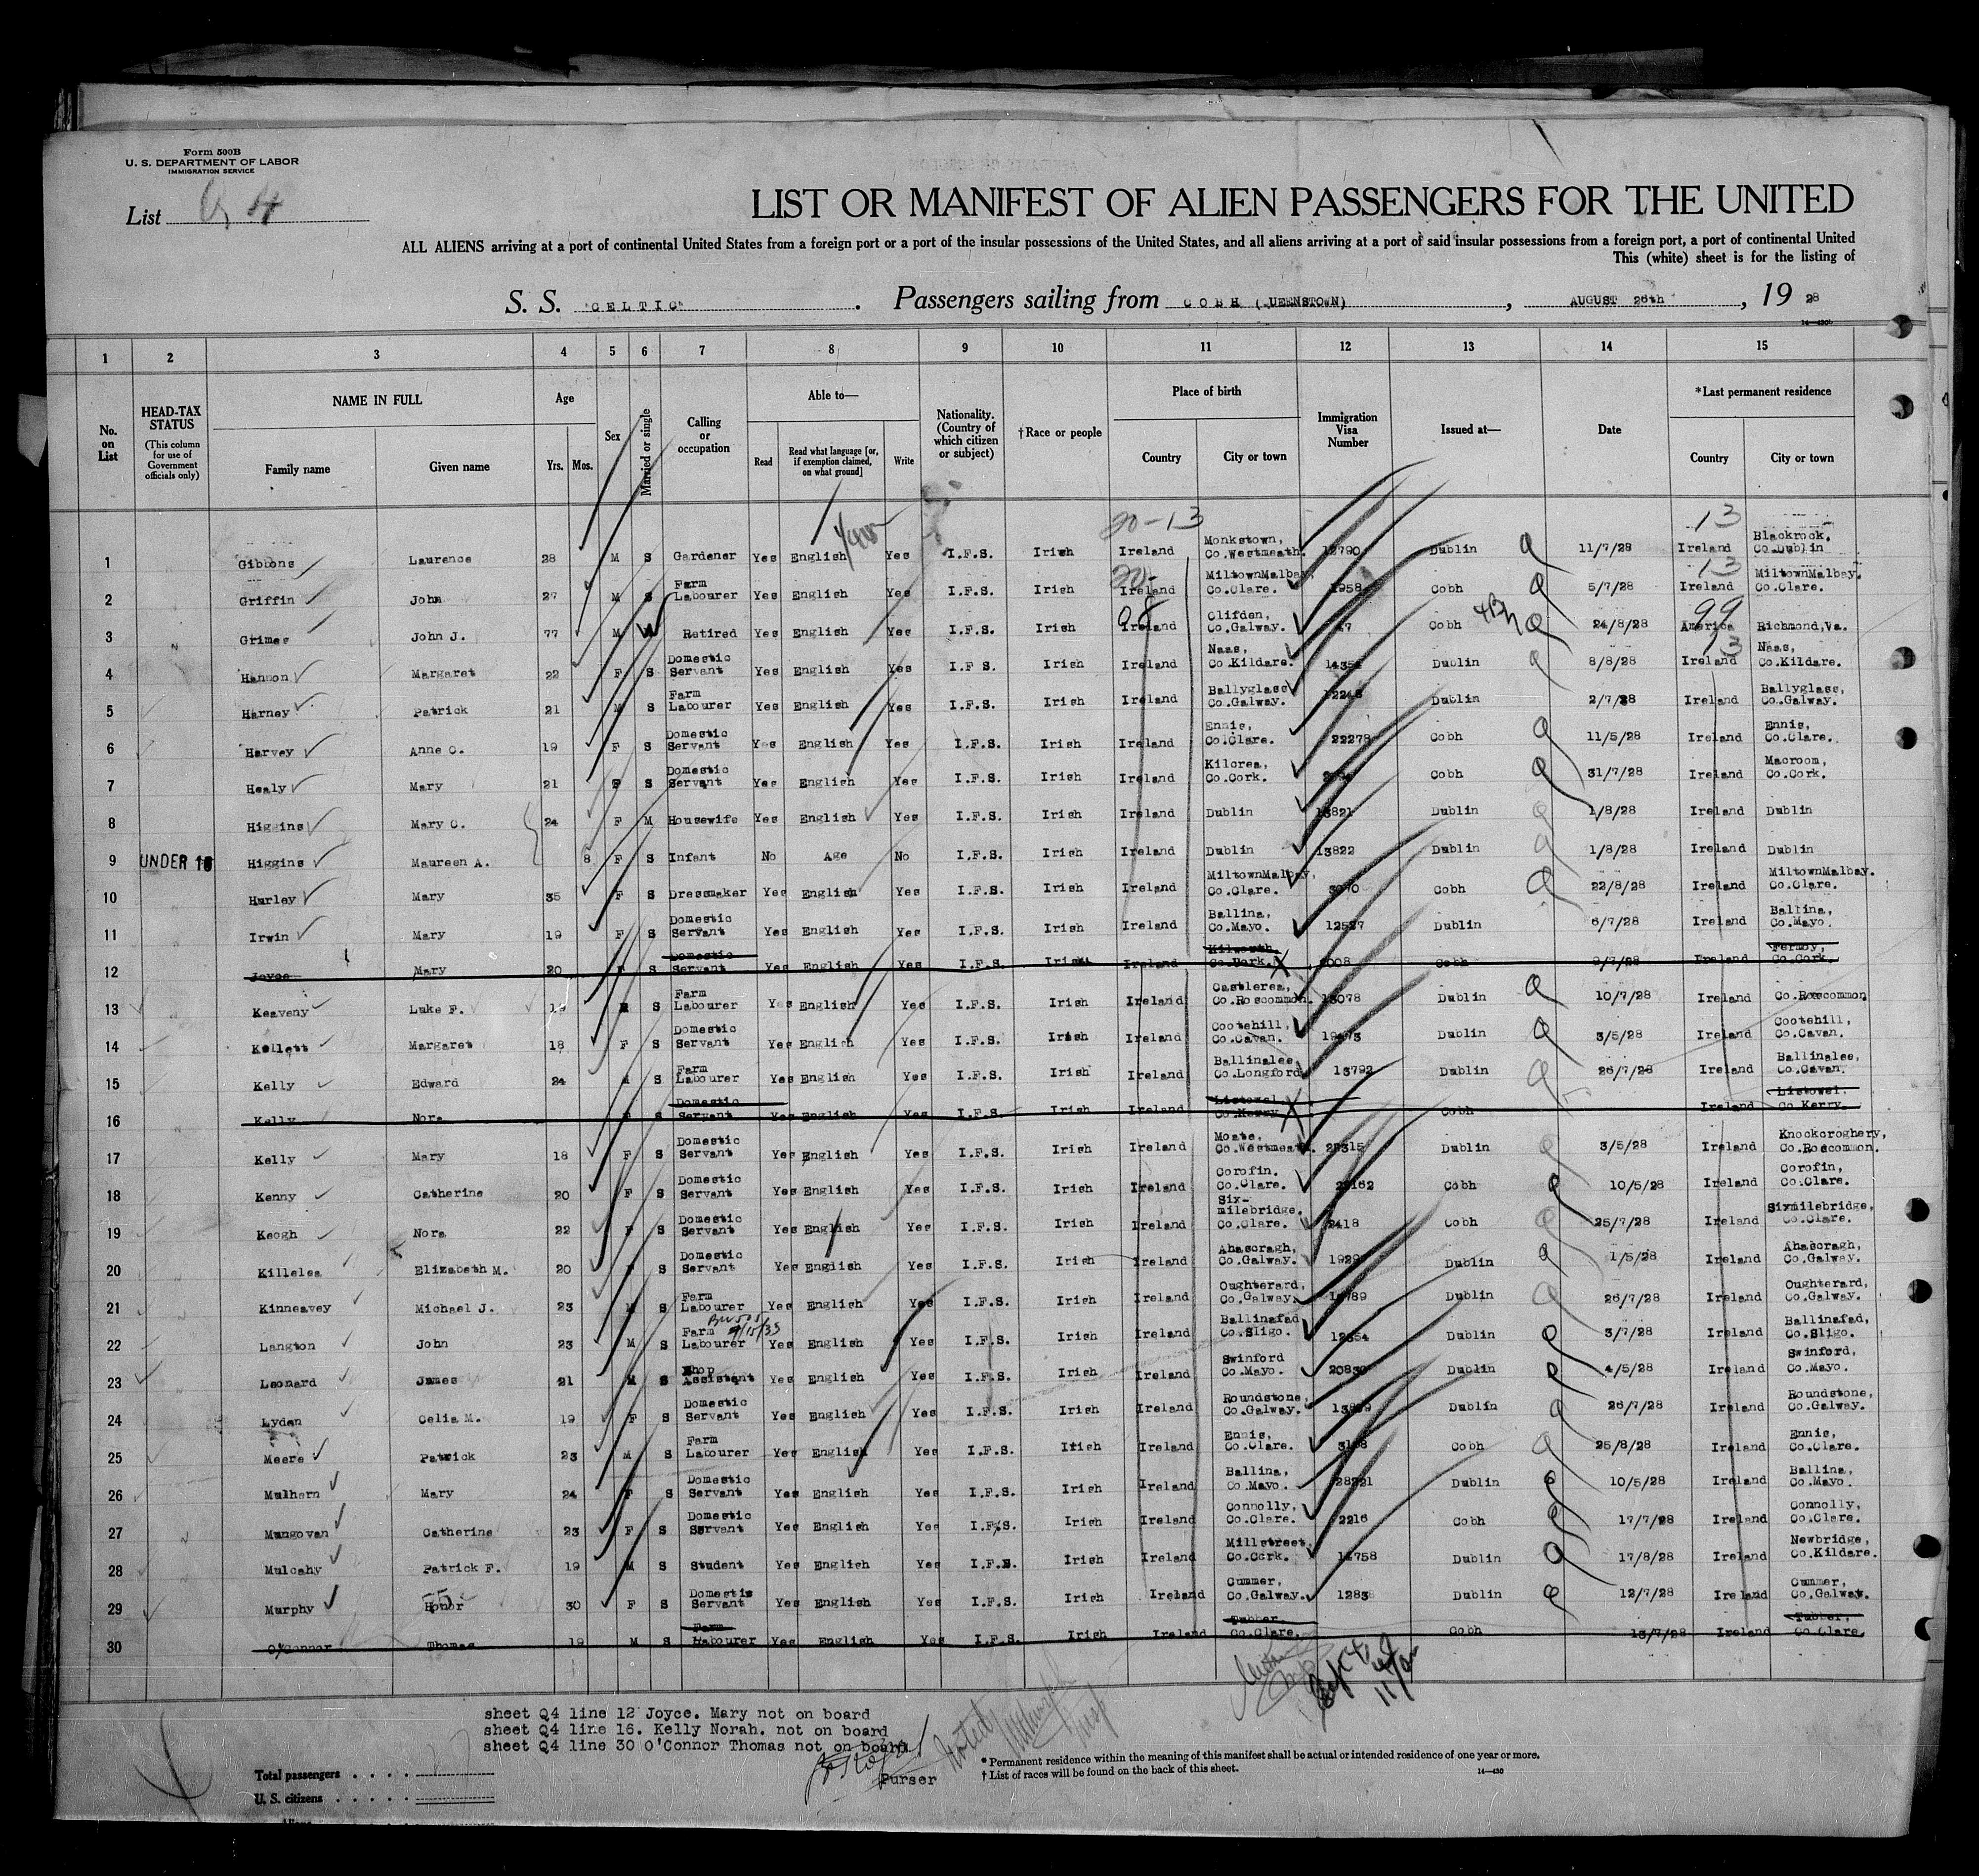 Form 500B
U. S. DEPARTMENT OF LABOR
IMMIGRATION SERVICE
List Q 4
LIST OR MANIFEST OF ALIEN PASSENGERS FOR THE UNITED
ALL ALIENS arriving at a port of continental United States from a foreign port or a port of the insular possessions of the United States, and all aliens arriving at a port of said insular possessions from a foreign port, a port of continental United
This (white) sheet is for the listing of
S. S. "CELTIC". Passengers sailing from COBH (QUEENSTOWN), AUGUST 26th, 1928
14—430b
1 2 3 4 5 6 7 8 9 10 11 12 13 14 15
No. on List
HEAD-TAX STATUS (This column for use of Government officials only)
NAME IN FULL
Family name Given name
Age Yrs. Mos.
Sex
Married or single
Calling or occupation
Able to— Read Read what language [or, if exemption claimed, on what ground] Write
Nationality. (Country of which citizen or subject)
†Race or people
Place of birth Country City or town
Immigration Visa Number
Issued at—
Date
*Last permanent residence Country City or town
20-13 13
1 Gibbons Laurence 28 M S Gardener Yes English Yes I.F.S. Irish Ireland Monkstown, Co.Westmeath. 12790 Dublin 11/7/28 Ireland Blackrock, Co.Dublin
2 Griffin John 27 M S Farm Labourer Yes English Yes I.F.S. Irish Ireland MiltownMalbay, Co.Clare. Cobh 5/7/28 Ireland MiltownMalbay. Co.Clare.
3 Grimes John J. 77 M Retired Yes English Yes I.F.S. Irish Ireland Clifden, Co.Galway. Cobh 24/8/28 America Richmond,Va. 99
4 Hannon Margaret 22 F S Domestic Servant Yes English Yes I.F S. Irish Ireland Naas, Co.Kildare. Dublin 8/8/28 Ireland Naas, Co.Kildare.
5 Harney Patrick 21 M S Farm Labourer Yes English Yes I.F.S. Irish Ireland Ballyglass Co.Galway. Dublin 2/7/28 Ireland Ballyglass, Co.Galway.
6 Harvey Anne C. 19 F S Domestic Servant Yes English Yes I.F.S. Irish Ireland Ennis, Co.Clare. 22278 Cobh 11/5/28 Ireland Ennis, Co.Clare.
7 Healy Mary 21 F S Domestic Servant Yes English Yes I.F.S. Irish Ireland Kilcrea, Co.Cork. Cobh 31/7/28 Ireland Macroom, Co.Cork.
8 Higgins Mary C. 24 F M Housewife Yes English Yes I.F.S. Irish Ireland Dublin 13821 Dublin 1/8/28 Ireland Dublin
9 UNDER 16 Higgins Maureen A. 8 F S Infant No Age No I.F.S. Irish Ireland Dublin 13822 Dublin 1/8/28 Ireland Dublin
10 Hurley Mary 35 F S Dressmaker Yes English Yes I.F.S. Irish Ireland MiltownMalbay, Co.Clare. 3070 Cobh 22/8/28 Ireland MiltownMalbay. Co.Clare.
11 Irwin Mary 19 F S Domestic Servant Yes English Yes I.F.S. Irish Ireland Ballina, Co.Mayo. 12527 Dublin 6/7/28 Ireland Ballina, Co.Mayo.
12 Joyce Mary 20 F S Domestic Servant Yes English Yes I.F.S. Irish Ireland Kilworth Co.Cork. 2008 Cobh 9/7/28 Ireland Fermoy, Co.Cork.
13 Keaveny Luke F. 19 M S Farm Labourer Yes English Yes I.F.S. Irish Ireland Castlerea, Co.Roscommon. 13078 Dublin 10/7/28 Ireland Co.Roscommon
14 Kellett Margaret 18 F S Domestic Servant Yes English Yes I.F.S. Irish Ireland Cootehill, Co.Cavan. 19473 Dublin 3/5/28 Ireland Cootehill, Co.Cavan.
15 Kelly Edward 24 M S Farm Labourer Yes English Yes I.F.S. Irish Ireland Ballinalee, Co.Longford 13792 Dublin 26/7/28 Ireland Ballinalee, Co.Cavan.
16 Kelly Nora F S Domestic Servant Yes English Yes I.F.S. Irish Ireland Listowel, Co.Kerry Cobh Ireland Listowel. Co.Kerry.
17 Kelly Mary 18 F S Domestic Servant Yes English Yes I.F.S. Irish Ireland Moate, Co.Westmeath. 22315 Dublin 3/5/28 Ireland Knockcroghery, Co.Roscommon.
18 Kenny Catherine 20 F S Domestic Servant Yes English Yes I.F.S. Irish Ireland Corofin. Co.Clare. 22162 Cobh 10/5/28 Ireland Corofin, Co.Clare.
19 Keogh Nora 22 F S Domestic Servant Yes English Yes I.F.S. Irish Ireland Six- milebridge. Co.Clare. 2418 Cobh 25/7/28 Ireland Sixmilebridge, Co.Clare.
20 Killelea Elizabeth M. 20 F S Domestic Servant Yes English Yes I.F.S. Irish Ireland Ahascragh, Co.Galway. Dublin 1/5/28 Ireland Ahascragh, Co.Galway.
21 Kinneavey Michael J. 23 M S Farm Labourer Yes English Yes I.F.S. Irish Ireland Oughterard, Co.Galway. Dublin 26/7/28 Ireland Oughterard, Co.Galway.
22 Langton John 23 M S Farm Labourer Yes English Yes I.F.S. Irish Ireland Ballinafad Co.Sligo. 12354 Dublin 3/7/28 Ireland Ballinafad, Co.Sligo.
23 Leonard James 21 M S Shop Assistant Yes English Yes I.F.S. Irish Ireland Swinford Co.Mayo. 20830 Dublin 4/5/28 Ireland Swinford, Co.Mayo.
24 Lydan Celia M. 19 F S Domestic Servant Yes English Yes I.F.S. Irish Ireland Roundstone, Co.Galway. Dublin 26/7/28 Ireland Roundstone, Co.Galway.
25 Meere Patrick 23 M S Farm Labourer Yes English Yes I.F.S. Irish Ireland Ennis, Co.Clare. Cobh 25/8/28 Ireland Ennis, Co.Clare.
26 Mulhern Mary 24 F S Domestic Servant Yes English Yes I.F.S. Irish Ireland Ballina, Co.Mayo. Dublin 10/5/28 Ireland Ballina, Co.Mayo.
27 Mungovan Catherine 23 F S Domestic Servant Yes English Yes I.F.S. Irish Ireland Connolly, Co.Clare. 2216 Cobh 17/7/28 Ireland Connolly, Co.Clare.
28 Mulcahy Patrick F. 19 M S Student Yes English Yes I.F.S. Irish Ireland Millstreet, Co.Cork. 14758 Dublin 17/8/28 Ireland Newbridge, Co.Kildare.
29 Murphy Honor 30 F S Domestic Servant Yes English Yes I.F.S. Irish Ireland Cummer, Co.Galway. Dublin 12/7/28 Ireland Cummer, Co.Galway.
30 O'Connor Thomas 19 M S Farm Labourer Yes English Yes I.F.S. Irish Ireland Tubber Co.Clare. Cobh 13/7/28 Ireland Tubber, Co.Clare.
sheet Q4 line 12 Joyce. Mary not on board
sheet Q4 line 16. Kelly Norah. not on board
sheet Q4 line 30 O'Connor Thomas not on board
Purser
Noted
Total passengers
U. S. citizens
Aliens
* Permanent residence within the meaning of this manifest shall be actual or intended residence of one year or more.
† List of races will be found on the back of this sheet.
14—430